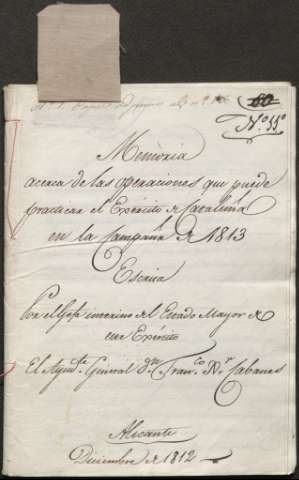 60
N.º 55º
Memoria
acerca de las operaciones que puede
practicar el Exército de Cataluña
en la Campaña de 1813
Escrita
Por el Gefe interino del Estado Mayor de
este Exército
El Ayud.te General D.n Fran.co X.r Cabanes
Alicante
Diciembre de 1812